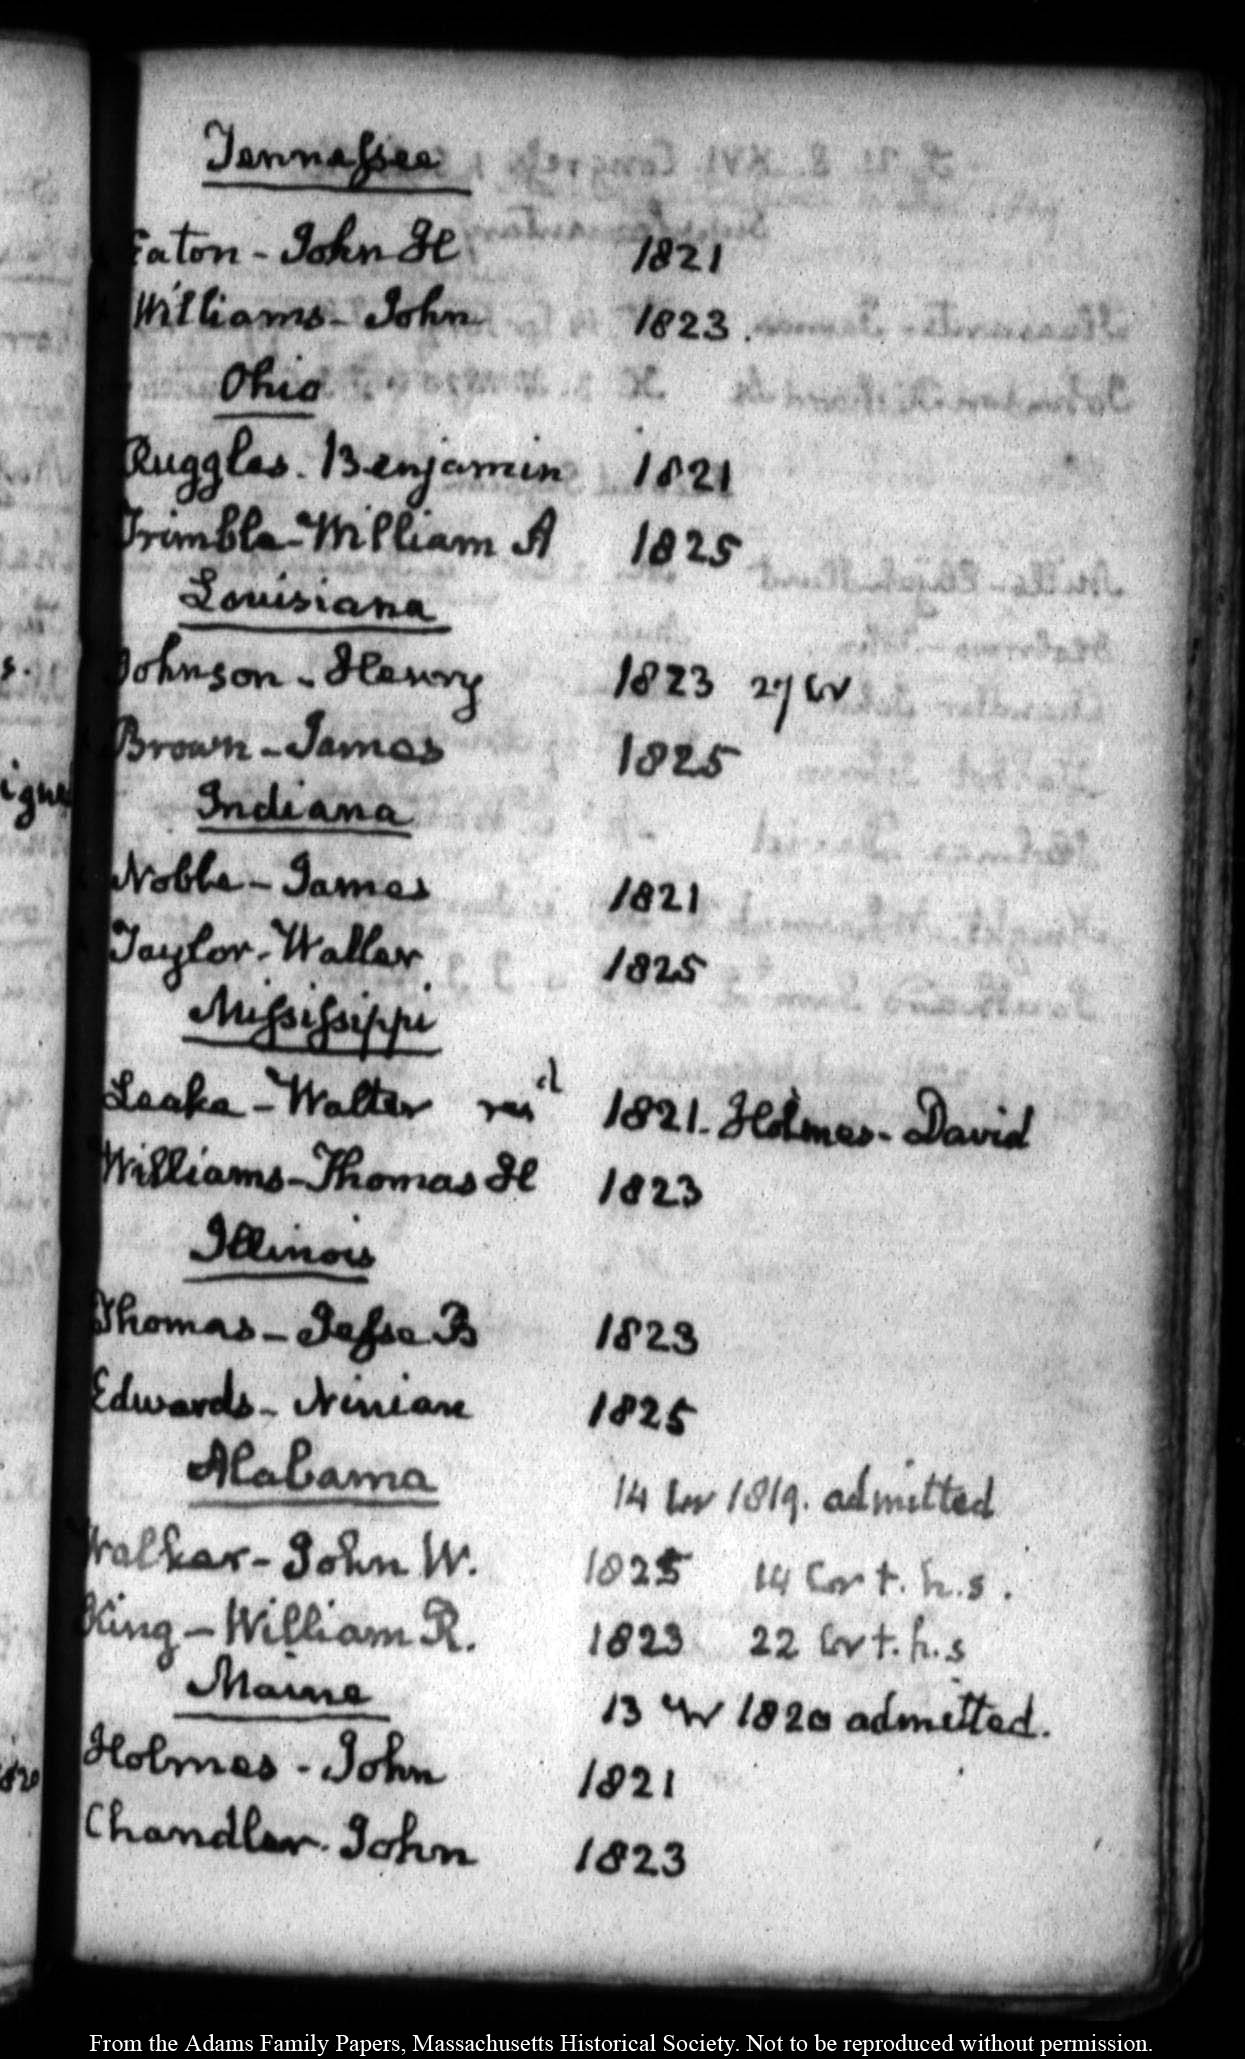 Tennessee
Eaton - John H 1821
Williams - John 1823.
Ohio
Ruggles. Benjamin 1821
Trimble - William A 1825
Louisiana
Johnson - Henry 1823 27
Brown - James 1825
Indiana
Noble - James 1821
Taylor - Waller 1825
Mississippi
Leake - Walter res^d 1821. Holmes - David
Williams - Thomas H 1823
Illinois
Thomas - Jesse B 1823
Edwards - Ninian 1825
Alabama 14 1819. admitted
Walker - John W. 1825 14 t. h. s.
King - William R. 1823 22 t. h. s
Maine 13 1820 admitted.
Holmes - John 1821
Chandler. John 1823
From the Adams Family Papers, Massachusetts Historical Society. Not to be reproduced without permission.